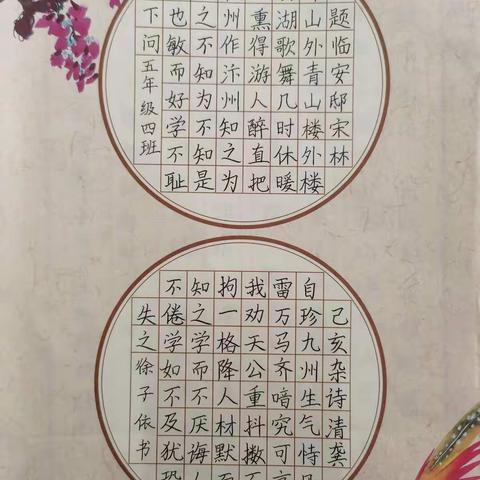 题临安邸宋林
山外青山楼外楼
湖歌舞几时休暖
熏得游人醉直把
州作汴州知之为
之不知为不知是
也敏而好学不耻
下问五年级四班
己亥杂诗清龚
自珍九州生气恃
雷万马齐喑究可
我劝天公重抖擞
拘一格降人材默
知之学而不厌诲
不倦学如不及犹恐
失之徐子依书